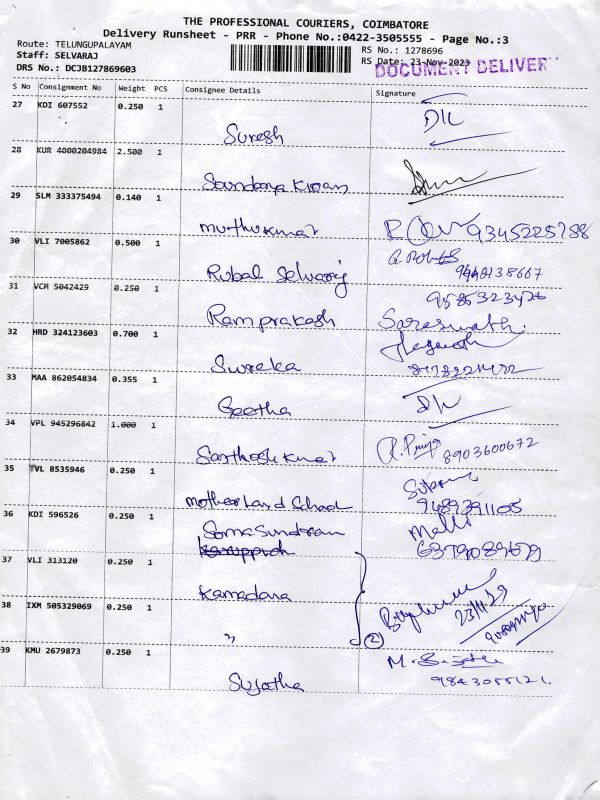 THE PROFESSIONAL COURIERS, COIMBATORE
Delivery Runsheet - PRR - Phone No.:0422-3505555 - Page No.:3
Route: TELUNGUPALAYAM
Staff: SELVARAJ
DRS No.: DCJB127869603
RS No.: 1278696
RS Date: 23-Nov-2023
DOCUMENT DELIVER
S No Consignment No Weight PCS Consignee Details Signature
27 KDI 607552 0.250 1
Suresh
28 KUR 4000204984 2.500 1
Soundarya Kiran
29 SLM 333375494 0.140 1
muthukumar
30 VLI 7005862 0.500 1
Rubal Selvaraj
31 VCM 5042429 0.250 1
9585323426
Ramprakash Saraswathi
32 HRD 324123603 0.700 1
Sureka
33 MAA 862054834 0.355 1
Geetha
34 VPL 945296842 1.000 1
Santhosh Kumar R. Priya 8903600672
35 TVL 8535946 0.250 1
Mother Land School 9489391105
36 KDI 596526 0.250 1
Somasundram Malli
6379089679
37 VLI 313120 0.250 1
Kamadana
38 IXM 505329069 0.250 1
23/11/23
" 2
39 KMU 2679873 0.250 1
Sujatha M. Sujatha
9843055121